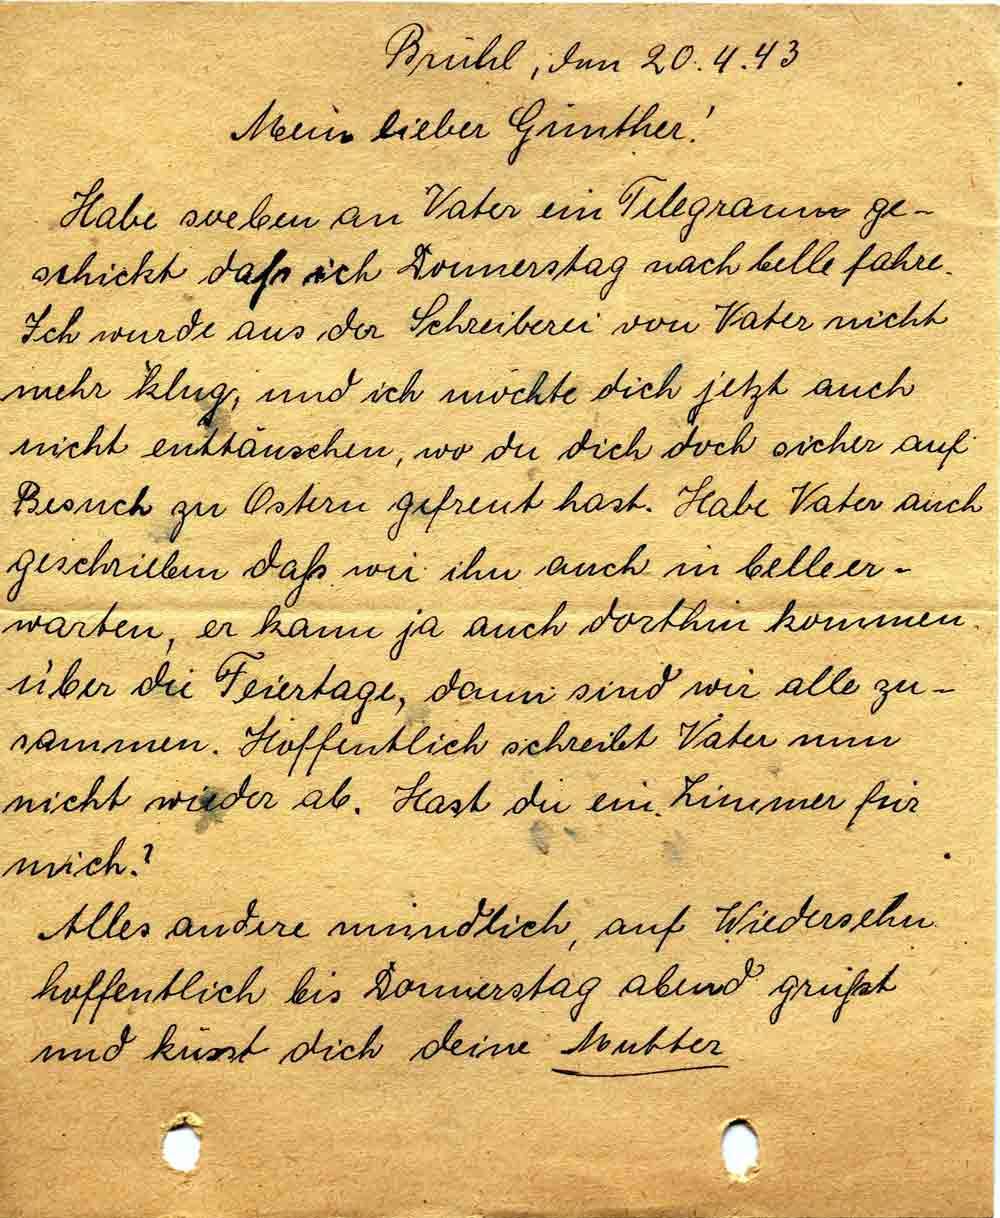 Brühl, den 20.4.43
Mein lieber Günther!
Habe soeben an Vater ein Telegramm ge-
schickt daß ich Donnerstag nach Celle fahre.
Ich wurde aus der Schreiberei von Vater nicht
mehr klug, und ich möchte dich jetzt auch
nicht enttäuschen, wo du dich doch sicher auf
Besuch zu Ostern gefreut hast. Habe Vater auch
geschrieben daß wir ihn auch in Celle er-
warten, er kann ja auch dorthin kommen
über die Feiertage, dann sind wir alle zu-
sammen. Hoffentlich schreibt Vater nun
nicht wieder ab. Hast du ein Zimmer für
mich?
Alles andere mündlich, auf Wiedersehn
hoffentlich bis Donnerstag abend grüßt
und küsst dich deine Mutter